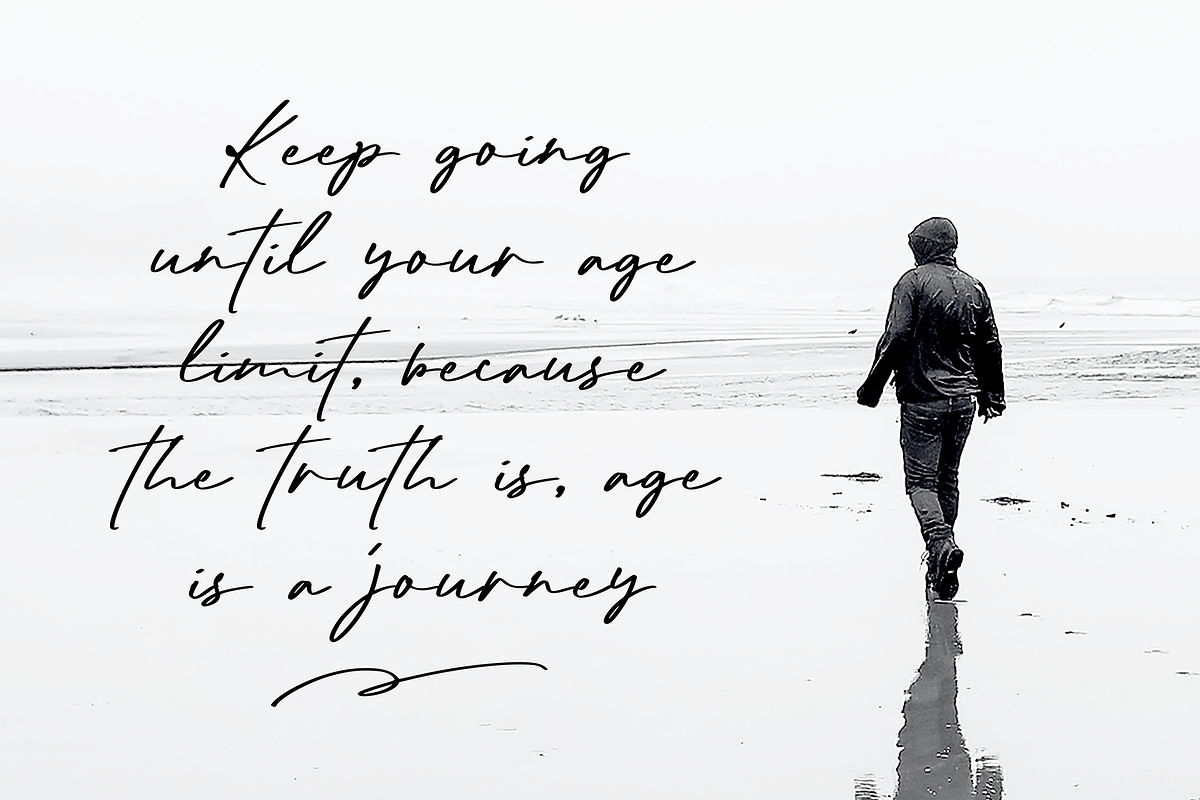 Keep going
until your age
limit, because
the truth is, age
is a journey